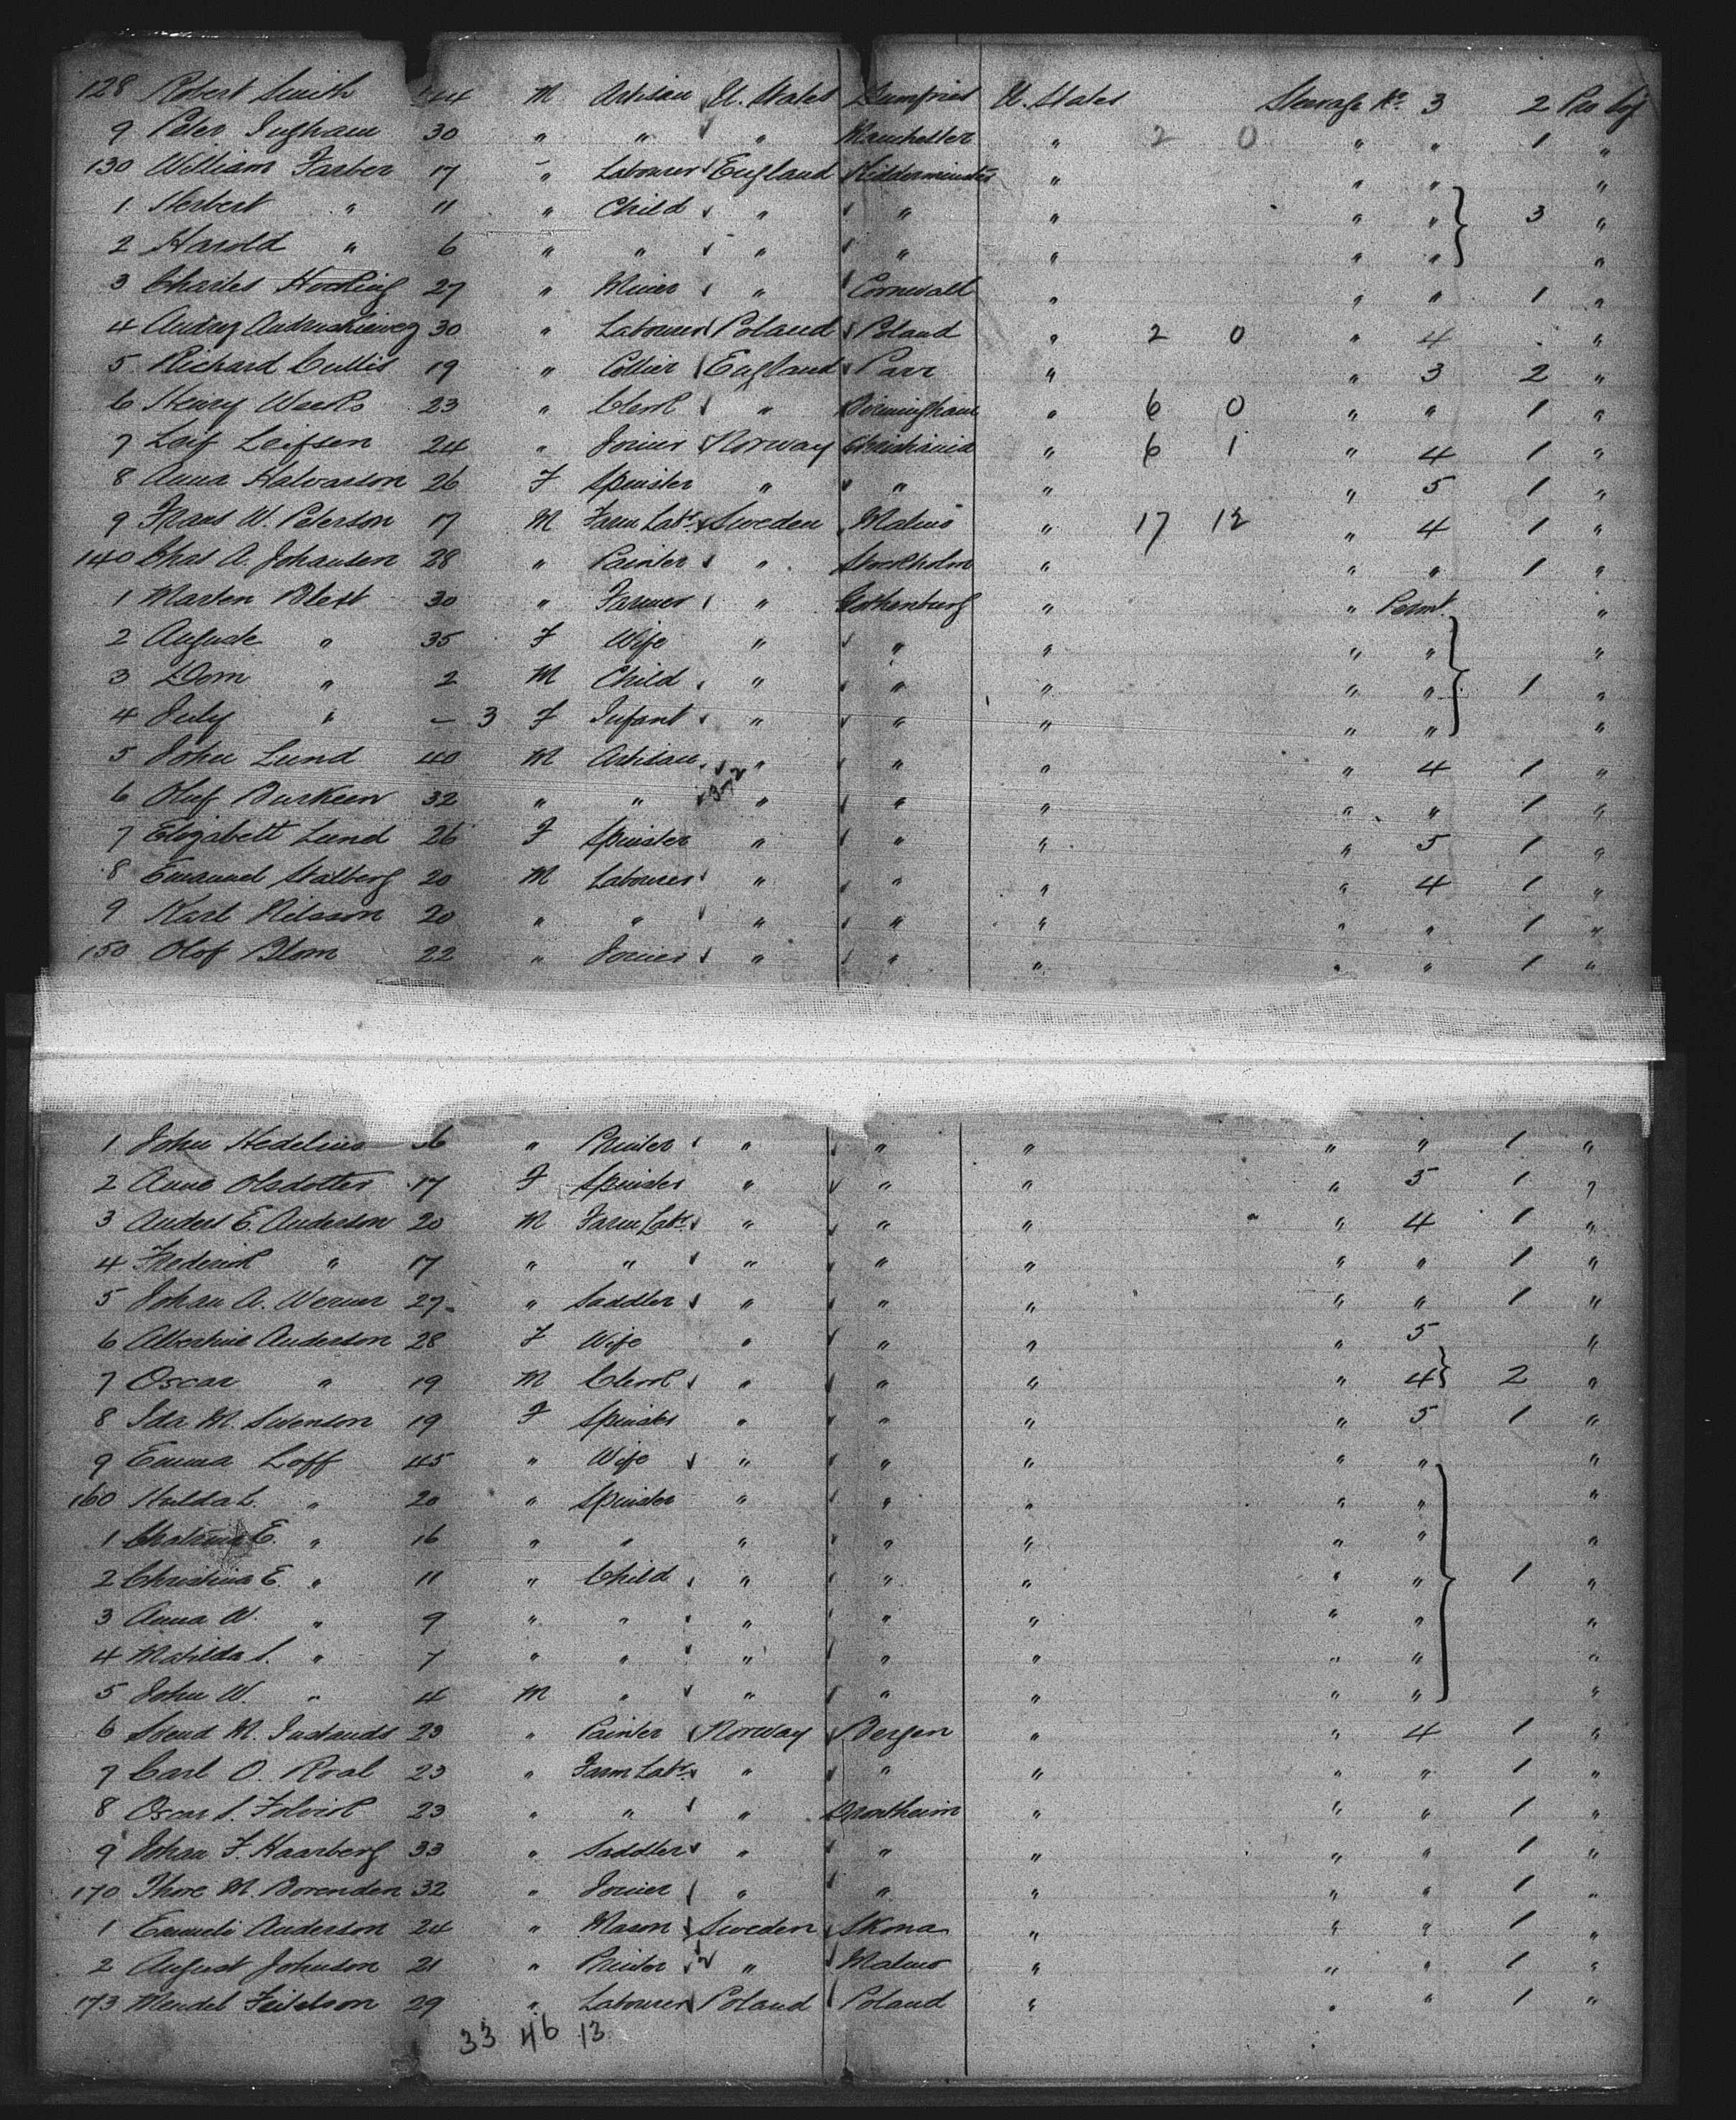 128 Robert Smith 44 M Artisan U. States Dumfries U. States Steerage No. 3 2 Pro Soj
9 Peter Ingham 30 " " " Manchester " 2 0 " " 1 "
130 William Farber 17 " Labourer England Kidderminster " " " "
1 Herbert " 11 " Child " " " " " 3 "
2 Harold " 6 " " " " " " " "
3 Charles Hosking 27 " Miner " Cornwall " " " 1 "
4 30 " Labourer Poland Poland " 2 0 " 4 "
5 Richard Cullis 19 " Collier England Parr " " 3 2 "
6 Henry Weeks 23 " Clerk " Birmingham " 6 0 " " 1 "
7 Leif Leifsen 24 " Joiner Norway Christiania " 6 1 " 4 1 "
8 Anna Halvarson 26 F Spinster " " " " 5 1 "
9 Frans W. Peterson 17 M Farm Labr. Sweden Malmo " 17 12 " 4 1 "
140 Chas A. Johansen 28 " Painter " Stockholm " " " 1 "
1 Marten Blext 30 " Farmer " Gothenburg " " Permt. "
2 Auguste " 35 F Wife " " " " " "
3 " 2 M Child " " " " " 1 "
4 July " – 3 F Infant " " " " " "
5 John Lund 40 M Artisan " " " " 4 1 "
6 Oluf Burkeen 32 " " " " " " " 1 "
7 Elizabett Lund 26 F Spinster " " " " 5 1 "
8 Emanuel Stalberg 20 M Labourer " " " " 4 1 "
9 Karl Nilsson 20 " " " " " " " 1 "
150 Olof Blom 22 " Joiner " " " " " 1 "
1 John Hedelius 36 " Painter " " " " " 1 "
2 Anna Olsdotter 17 F Spinster " " " " 5 1 "
3 Anders E. Anderson 20 M Farm Labr. " " " " 4 1 "
4 Frederick " 17 " " " " " " " 1 "
5 Johan A. Werner 27 " Saddler " " " " " 1 "
6 Albertine Anderson 28 F Wife " " " " 5 "
7 Oscar " 19 M Clerk " " " " 4 2 "
8 Ida M. Swenson 19 F Spinster " " " " 5 1 "
9 Emma Loff 45 " Wife " " " " " "
160 Hulda L. " 20 " Spinster " " " " " "
1 E. " 16 " " " " " " " "
2 Christina E. " 11 " Child " " " " " 1 "
3 Anna W. " 9 " " " " " " " "
4 Matilda S. " 7 " " " " " " " "
5 John W. " 4 M " " " " " " "
6 Svend M. 23 " Painter Norway Bergen " " 4 1 "
7 Carl O. Roal 23 " Farm Labr. " " " " " 1 "
8 Oscar S. 23 " " " Drontheim " " " 1 "
9 Johan F. Haarberg 33 " Saddler " " " " " 1 "
170 Thore M. Borenden 32 " Joiner " " " " " 1 "
1 Anderson 24 " Mason Sweden Skona " " " 1 "
2 August Johnson 21 " Painter " Malmo " " " 1 "
173 Mendel Feitelson 29 " Labourer Poland Poland " " " 1 "
33 46 13